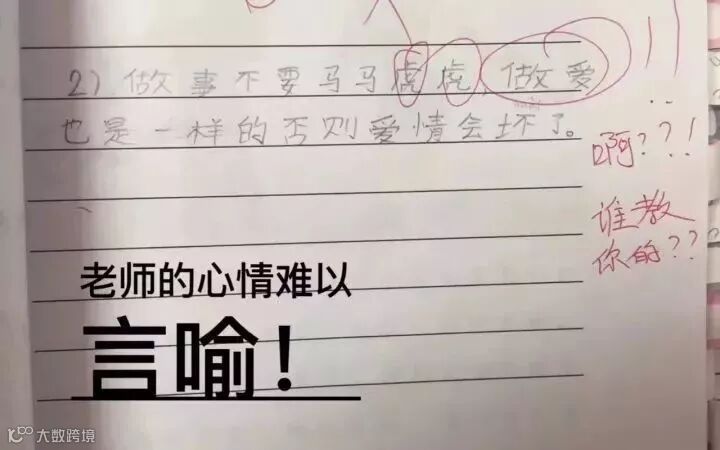 2) 做事不要马马虎虎,做爱
也是一样的否则爱情会坏了。
啊??!
谁教
你的??
老师的心情难以
言喻！
大数跨境